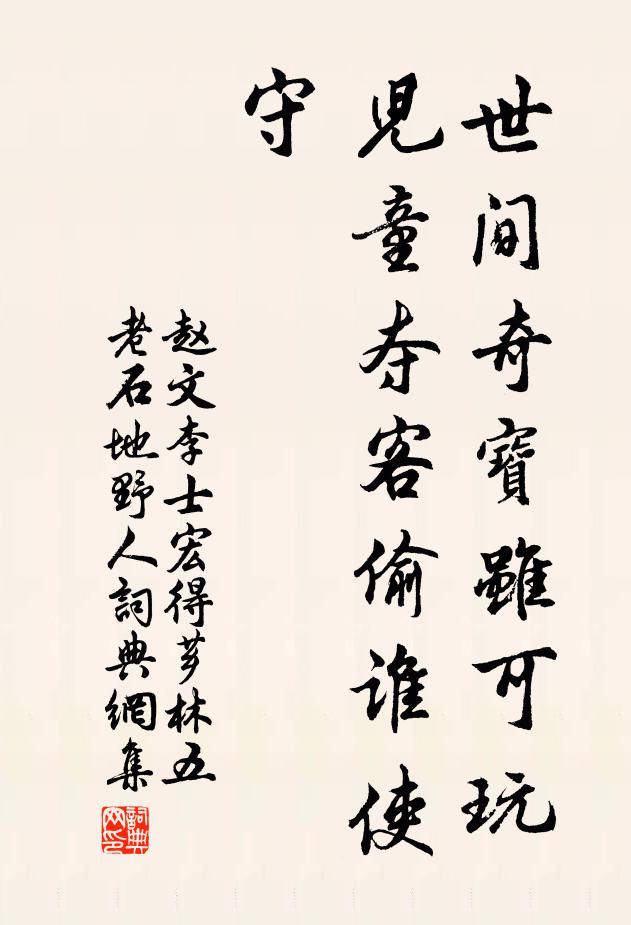 世間奇寶雖可玩
兒童夺客偷谁使
守
赵文李士宏得芗林五
老石地野人詞典網集
詞典
网印